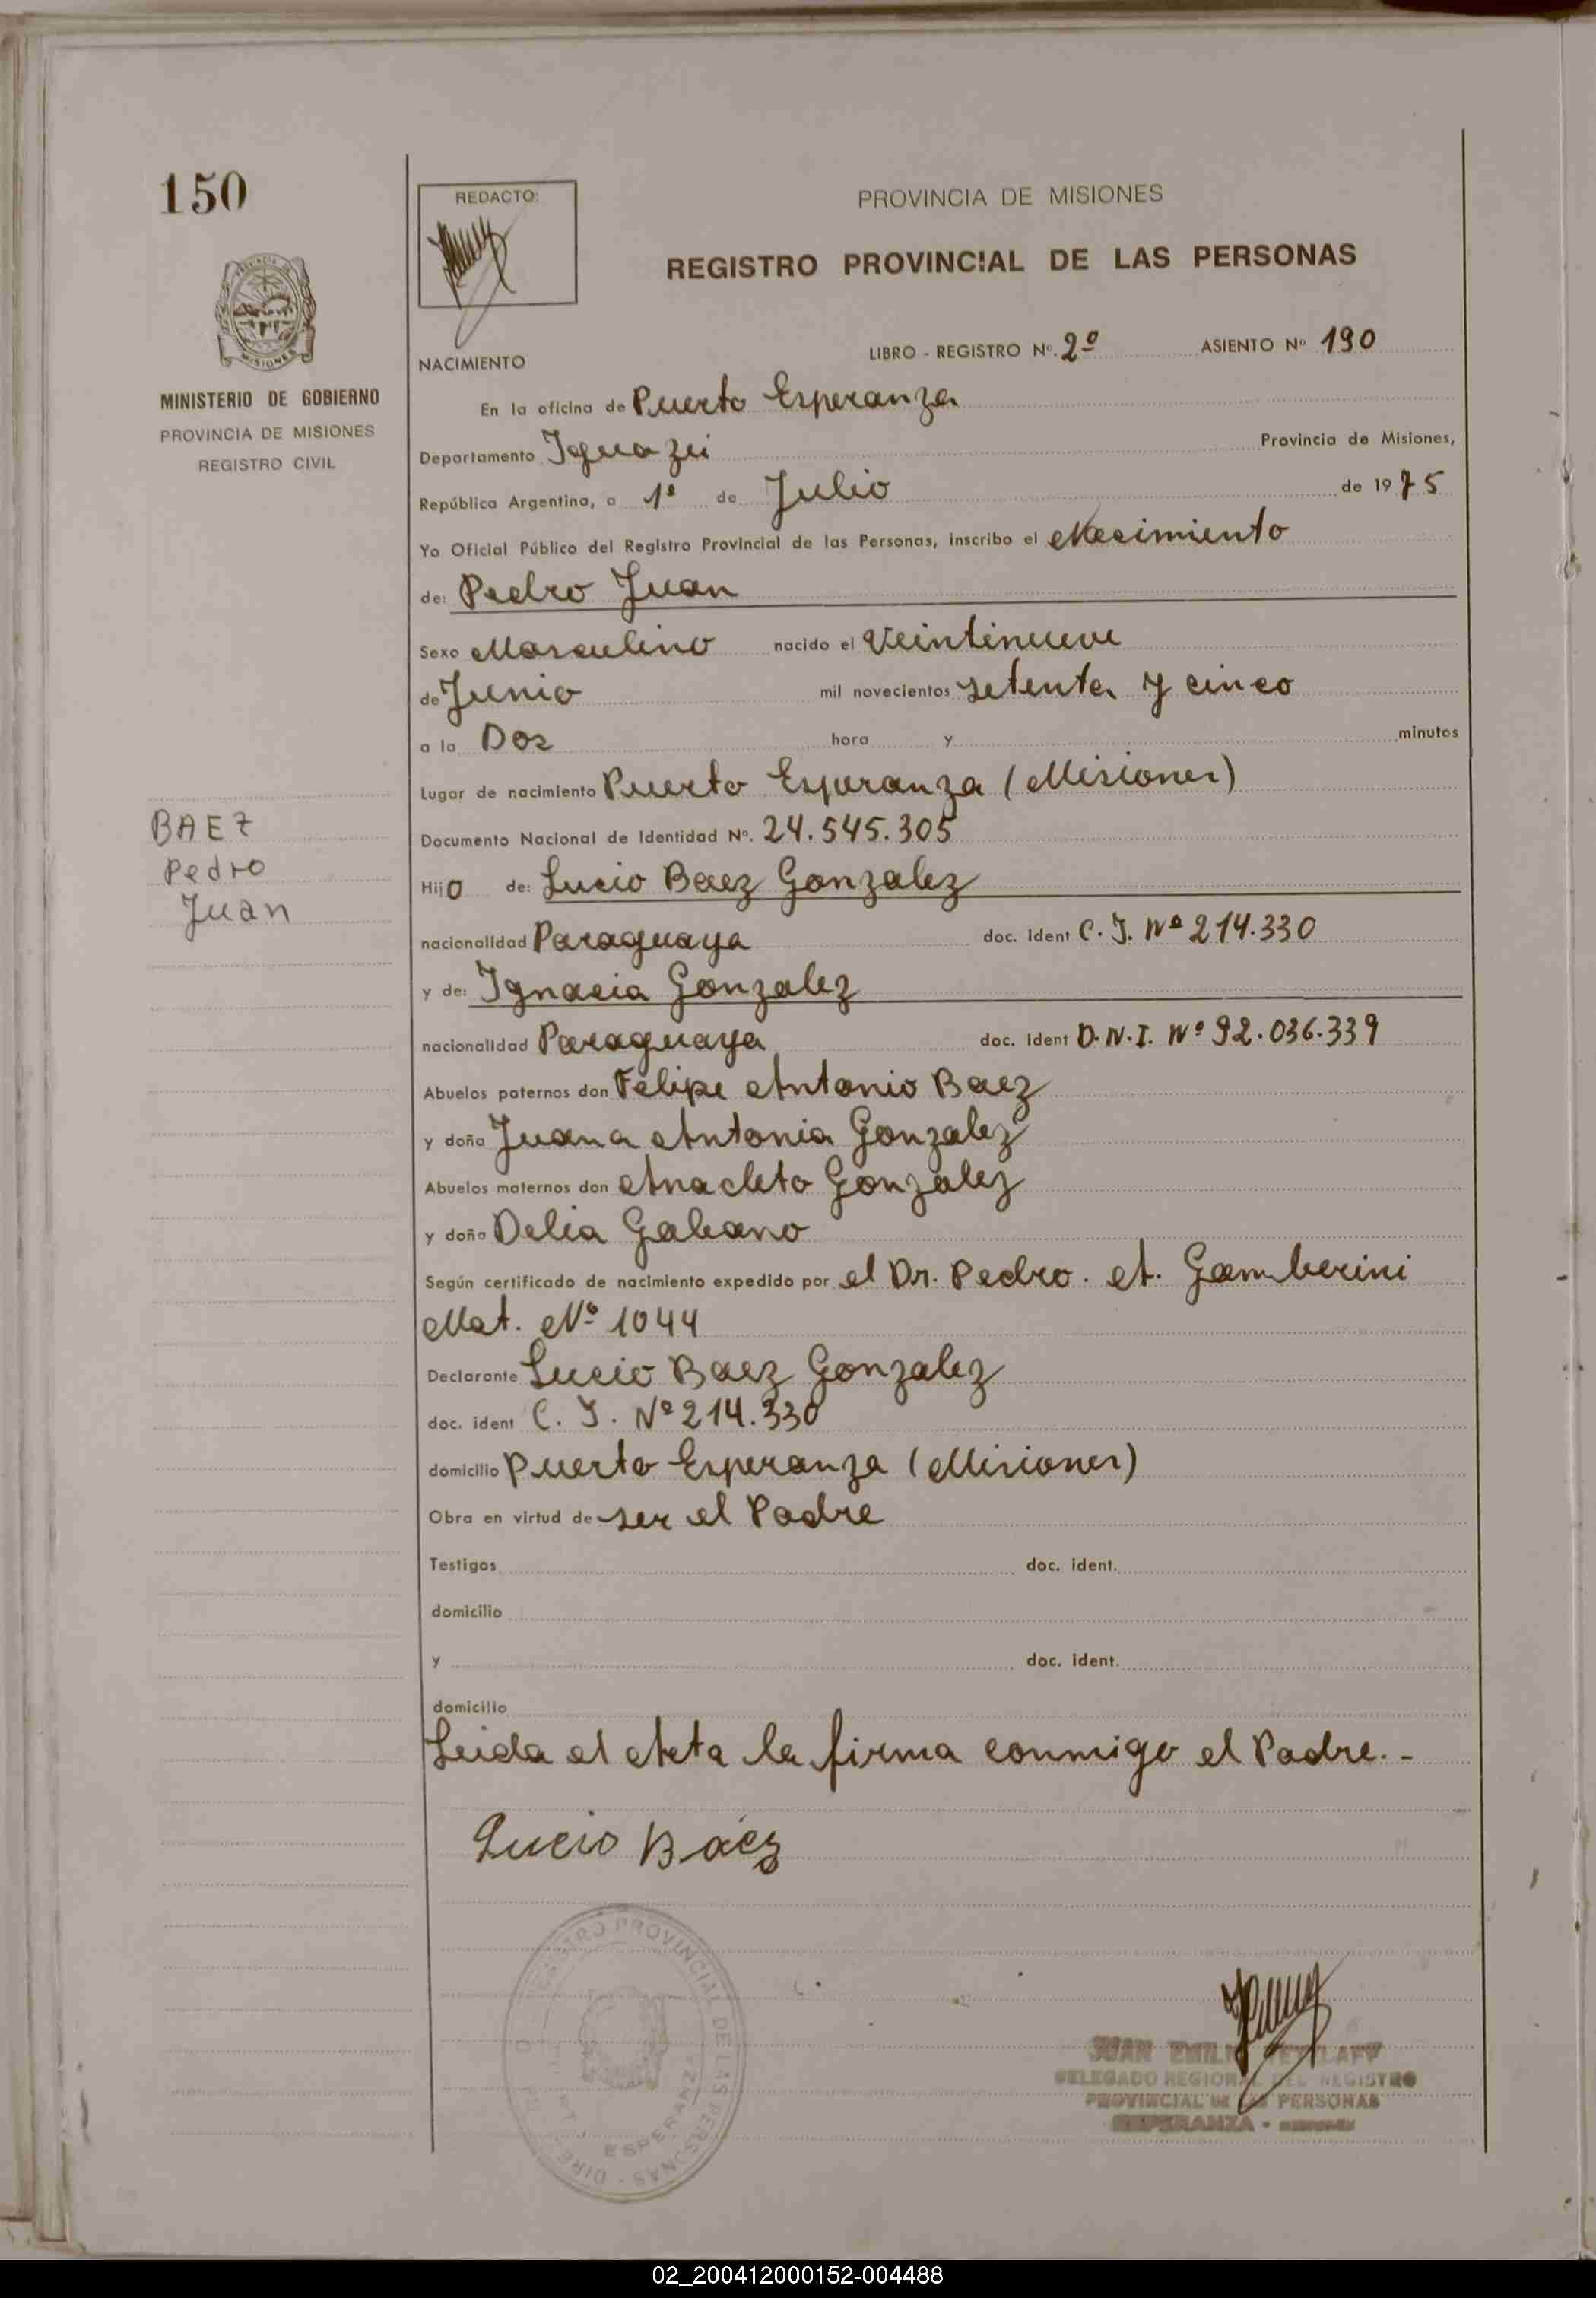 150
REDACTO:
PROVINCIA DE MISIONES
REGISTRO PROVINCIAL DE LAS PERSONAS
PROVINCIA DE
MISIONES
LIBRO - REGISTRO Nº. 2º ASIENTO Nº 190
NACIMIENTO
MINISTERIO DE GOBIERNO
PROVINCIA DE MISIONES
REGISTRO CIVIL
En la oficina de Puerto Esperanza
Departamento Iguazú Provincia de Misiones,
República Argentina, a 1º de Julio de 1975
Yo Oficial Público del Registro Provincial de las Personas, inscribo el Nacimiento
de: Pedro Juan
Sexo Masculino nacido el Veintinueve
de Junio mil novecientos setenta y cinco
a la Dos hora y minutos
Lugar de nacimiento Puerto Esperanza (Misiones)
BAEZ
Pedro
Juan
Documento Nacional de Identidad Nº. 24.545.305
Hijo de: Lucio Baez Gonzalez
nacionalidad Paraguaya doc. ident C. I. Nº 214.330
y de: Ignacia Gonzalez
nacionalidad Paraguaya doc. ident D.N.I. Nº 92.036.339
Abuelos paternos don Felipe Antonio Baez
y doña Juana Antonia Gonzalez
Abuelos maternos don Anacleto Gonzalez
y doña Delia Galeano
Según certificado de nacimiento expedido por el Dr. Pedro. A. Gamberini
Mat. Nº 1044
Declarante Lucio Baez Gonzalez
doc. ident C. I. Nº 214.330
domicilio Puerto Esperanza (Misiones)
Obra en virtud de ser el Padre
Testigos doc. ident.
domicilio
y doc. ident.
domicilio
Leida el Acta la firma conmigo el Padre. -
Lucio Báez
REGISTRO PROVINCIAL DE LAS PERSONAS - DIRE
ESPERANZA
JUAN EMILI
DELEGADO REGIONAL DEL REGISTRO
PROVINCIAL DE LAS PERSONAS
ESPERANZA -
02_200412000152-004488